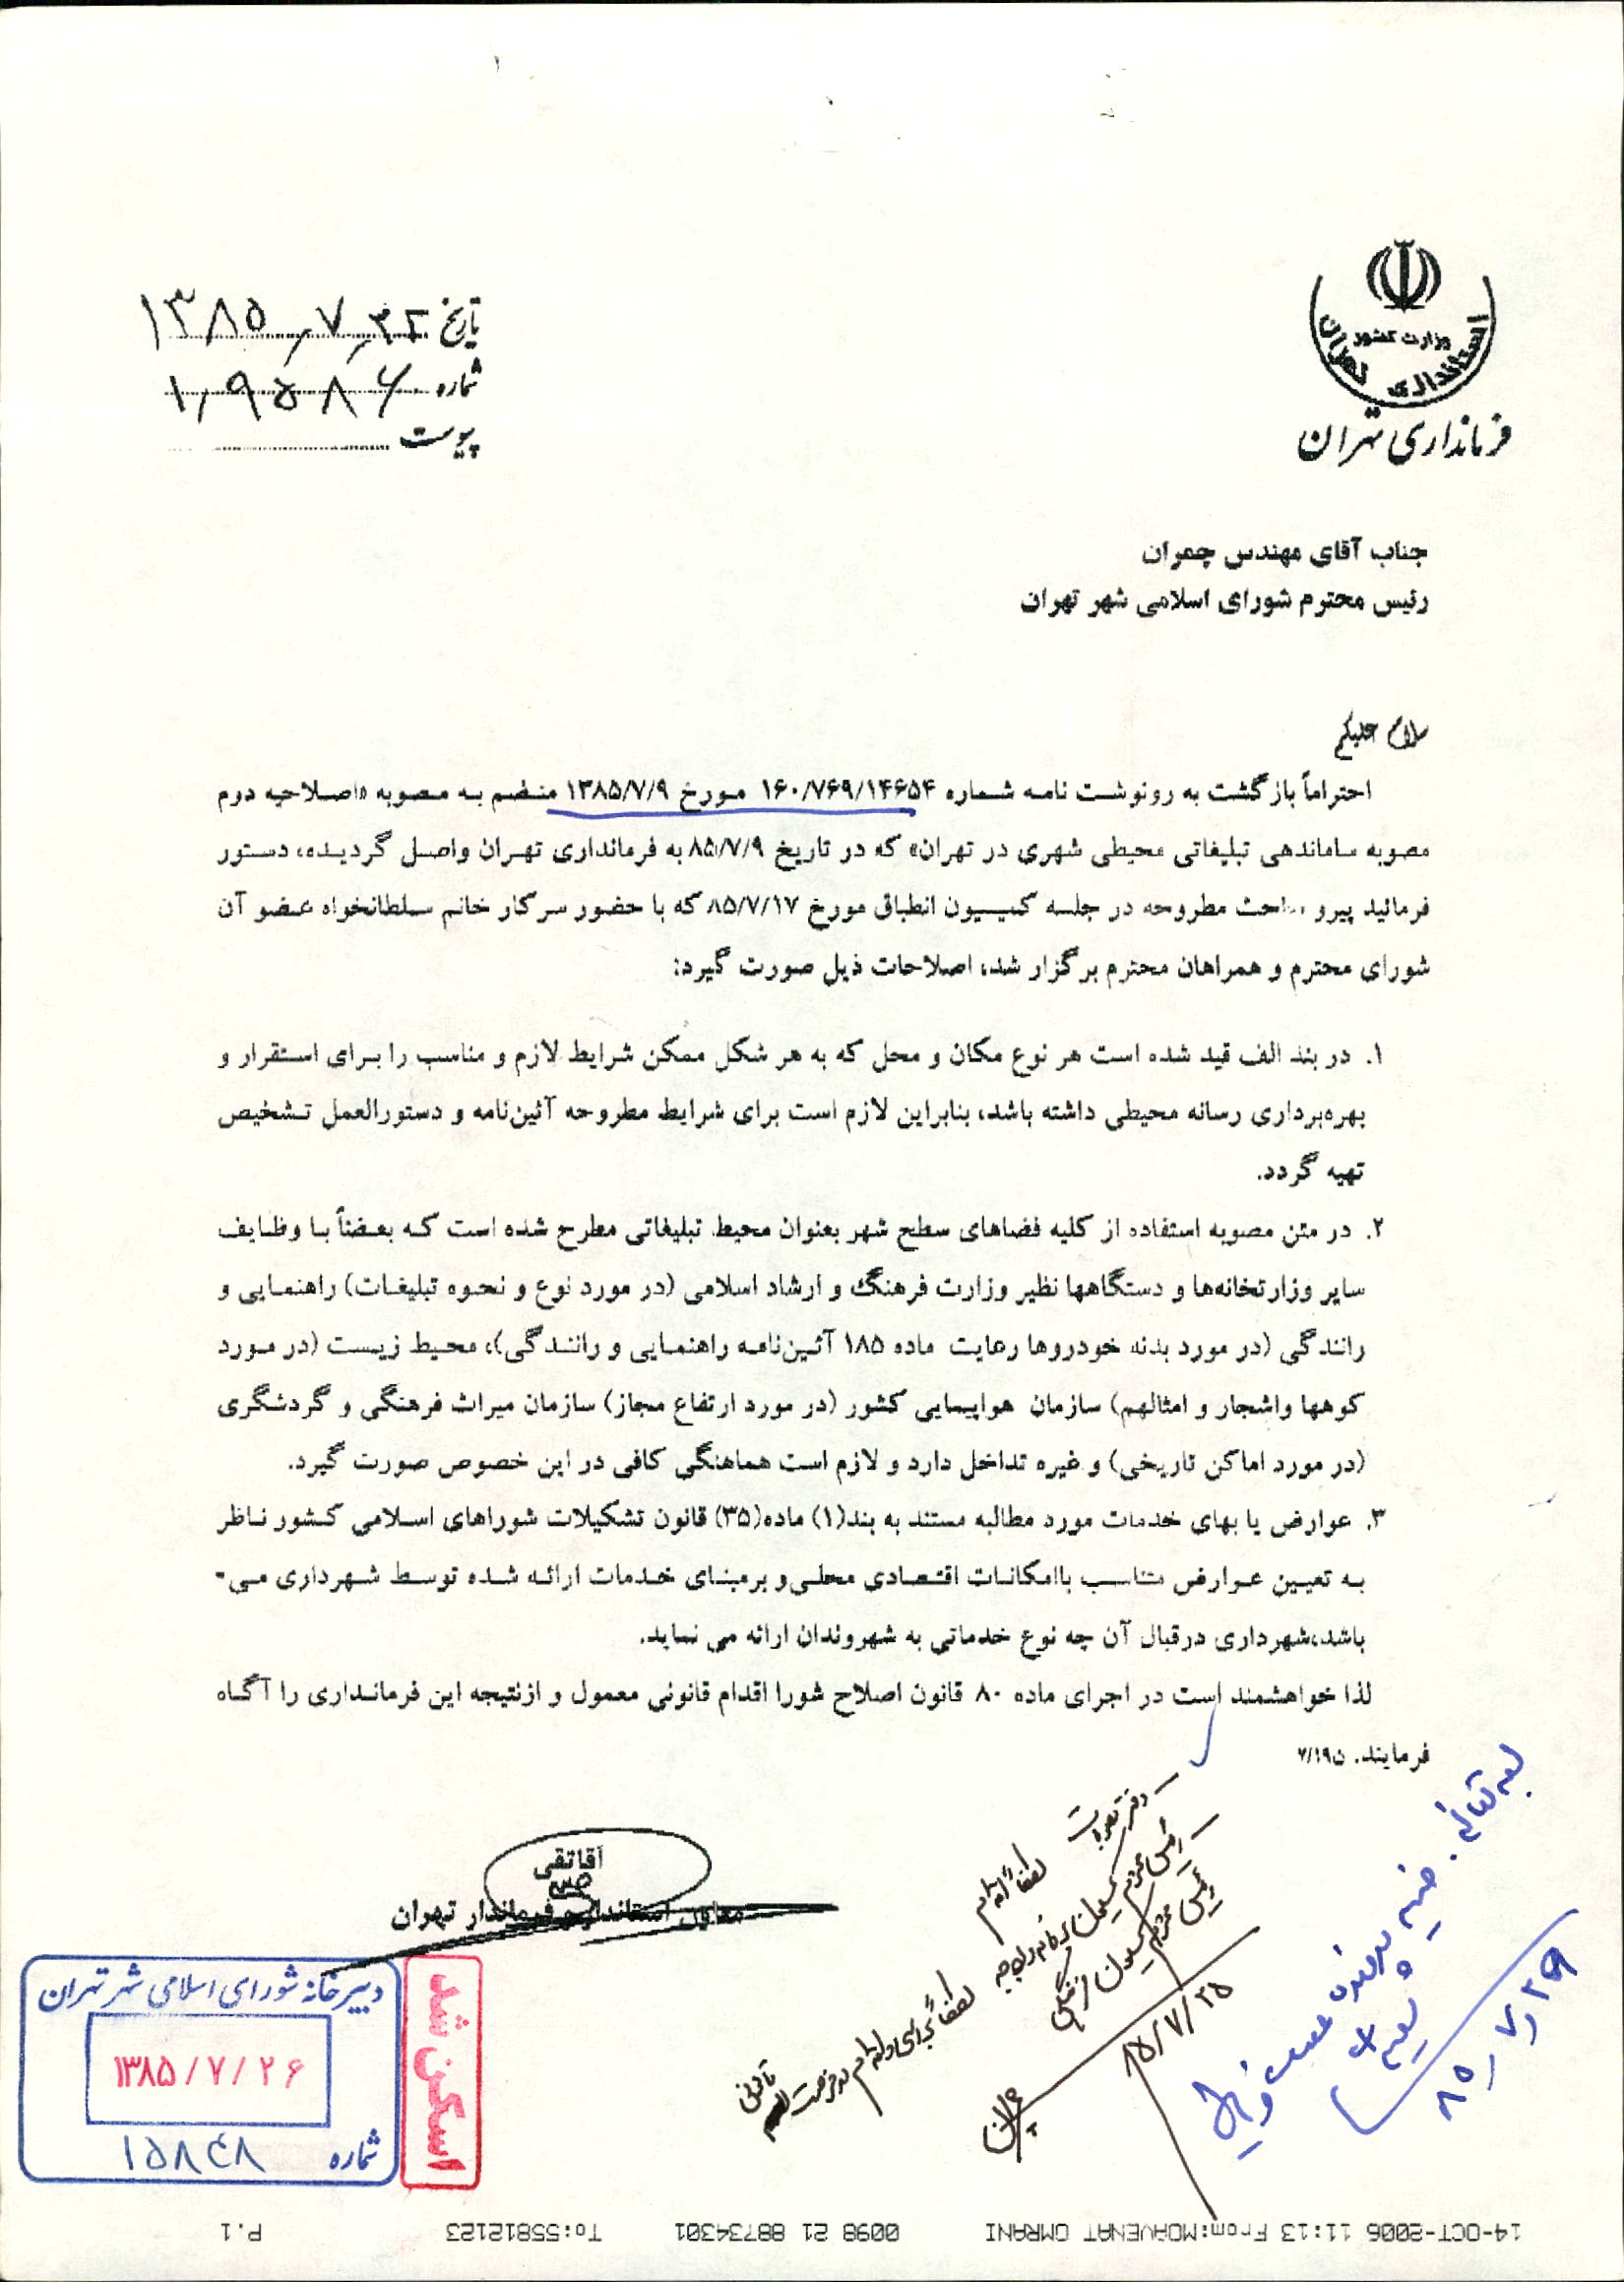 وزارت کشور
استانداری تهران
فرمانداری تهران
تاریخ ۱۳۸۵/۷/۲۲
شماره ۱۰۹۵۸۶
پیوست
جناب آقای مهندس چمران
رئیس محترم شورای اسلامی شهر تهران
سلام علیکم
احتراماً بازگشت به رونوشت نامه شماره ۱۶۰/۷۶۹/۱۴۶۵۴ مورخ ۱۳۸۵/۷/۹ منضم به مصوبه «اصلاحیه دوم
مصوبه ساماندهی تبلیغاتی محیطی شهری در تهران» که در تاریخ ۸۵/۷/۹ به فرمانداری تهران واصل گردیده، دستور
فرمائید پیرو مباحث مطروحه در جلسه کمیسیون انطباق مورخ ۸۵/۷/۱۷ که با حضور سرکار خانم سلطانخواه عضو آن
شورای محترم و همراهان محترم برگزار شد، اصلاحات ذیل صورت گیرد:
۱. در بند الف قید شده است هر نوع مکان و محل که به هر شکل ممکن شرایط لازم و مناسب را برای استقرار و
بهره‌برداری رسانه محیطی داشته باشد، بنابراین لازم است برای شرایط مطروحه آئین‌نامه و دستورالعمل تشخیص
تهیه گردد.
۲. در متن مصوبه استفاده از کلیه فضاهای سطح شهر بعنوان محیط تبلیغاتی مطرح شده است که بعضاً با وظایف
سایر وزارتخانه‌ها و دستگاهها نظیر وزارت فرهنگ و ارشاد اسلامی (در مورد نوع و نحوه تبلیغات) راهنمایی و
رانندگی (در مورد بدنه خودروها رعایت ماده ۱۸۵ آئین‌نامه راهنمایی و رانندگی)، محیط زیست (در مورد
کوهها واشجار و امثالهم) سازمان هواپیمایی کشور (در مورد ارتفاع مجاز) سازمان میراث فرهنگی و گردشگری
(در مورد اماکن تاریخی) و غیره تداخل دارد و لازم است هماهنگی کافی در این خصوص صورت گیرد.
۳. عوارض یا بهای خدمات مورد مطالبه مستند به بند(۱) ماده(۳۵) قانون تشکیلات شوراهای اسلامی کشور ناظر
به تعیین عوارض متناسب باامکانات اقتصادی محلی و برمبنای خدمات ارائه شده توسط شهرداری می-
باشد،شهرداری درقبال آن چه نوع خدماتی به شهروندان ارائه می نماید.
لذا خواهشمند است در اجرای ماده ۸۰ قانون اصلاح شورا اقدام قانونی معمول و ازنتیجه این فرمانداری را آگاه
فرمایند. ۷/۱۹۵
آقاتقی
معاون استاندار و فرماندار تهران
- دفتر مصوبات
۸۵/۷/۲۵
چمران
۸۵/۷/۲۹
دبیرخانه شورای اسلامی شهر تهران
۱۳۸۵/۷/۲۶
شماره ۱۵۸۴۸
اسکن شد
14-OCT-2006 11:13 From:MOAVENAT OMRANI 0098 21 88734301 To:55812123 P.1